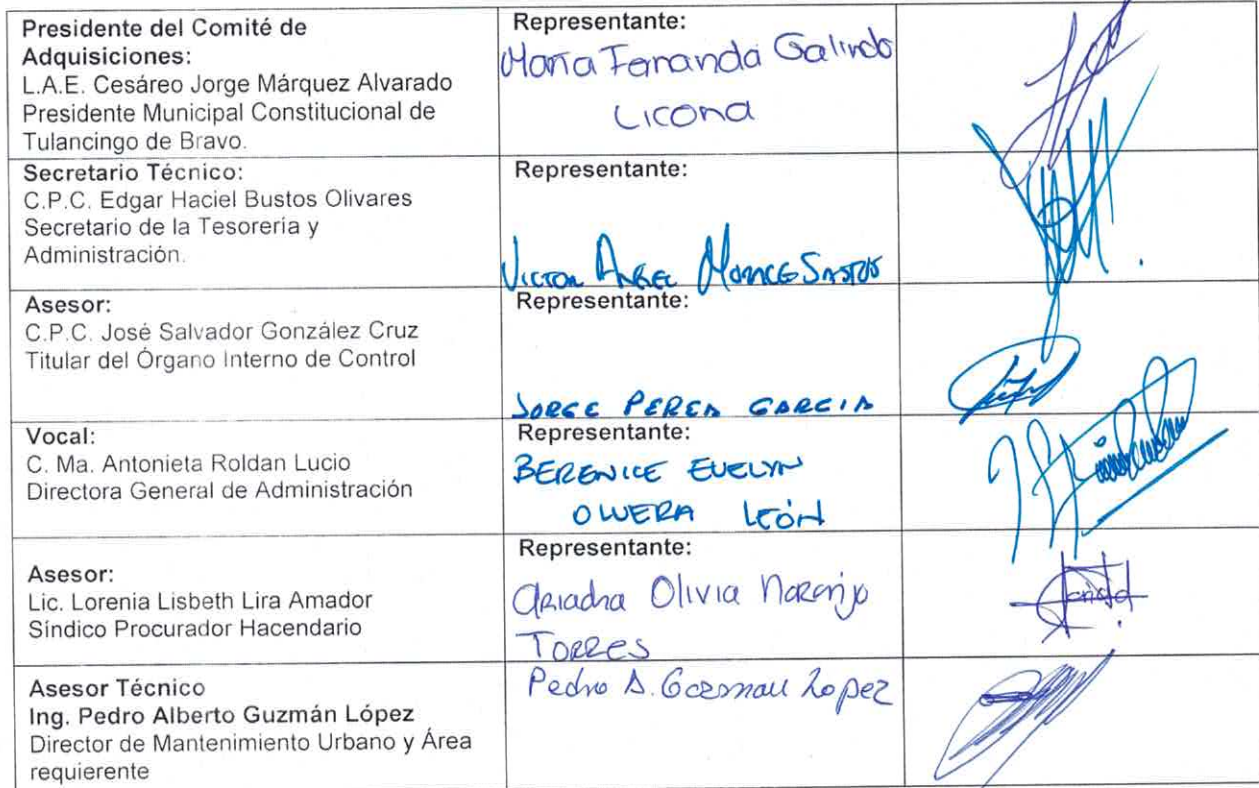 Presidente del Comité de
Adquisiciones:
L.A.E. Cesáreo Jorge Márquez Alvarado
Presidente Municipal Constitucional de
Tulancingo de Bravo.
Representante:
María Fernanda Galindo
Licona
Secretario Técnico:
C.P.C. Edgar Haciel Bustos Olivares
Secretario de la Tesorería y
Administración.
Representante:
VICTOR ANGEL SANTOS
Asesor:
C.P.C. José Salvador González Cruz
Titular del Órgano Interno de Control
Representante:
JORGE PEREA GARCIA
Vocal:
C. Ma. Antonieta Roldan Lucio
Directora General de Administración
Representante:
BERENICE EVELYN
OLVERA LEÓN
Asesor:
Lic. Lorenia Lisbeth Lira Amador
Síndico Procurador Hacendario
Representante:
Ariadna Olivia Naranjo
TORRES
Asesor Técnico
Ing. Pedro Alberto Guzmán López
Director de Mantenimiento Urbano y Área
requierente
Pedro A. Guzman Lopez